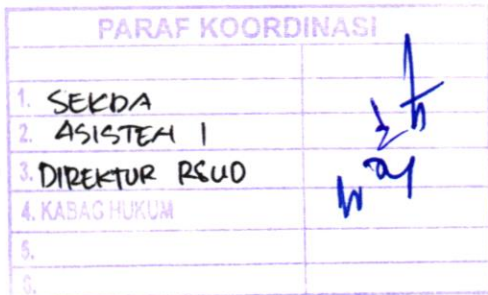 PARAF KOORDINASI
1. SEKDA
2. ASISTEN I
3. DIREKTUR RSUD
4. KABAG HUKUM
5.
6.